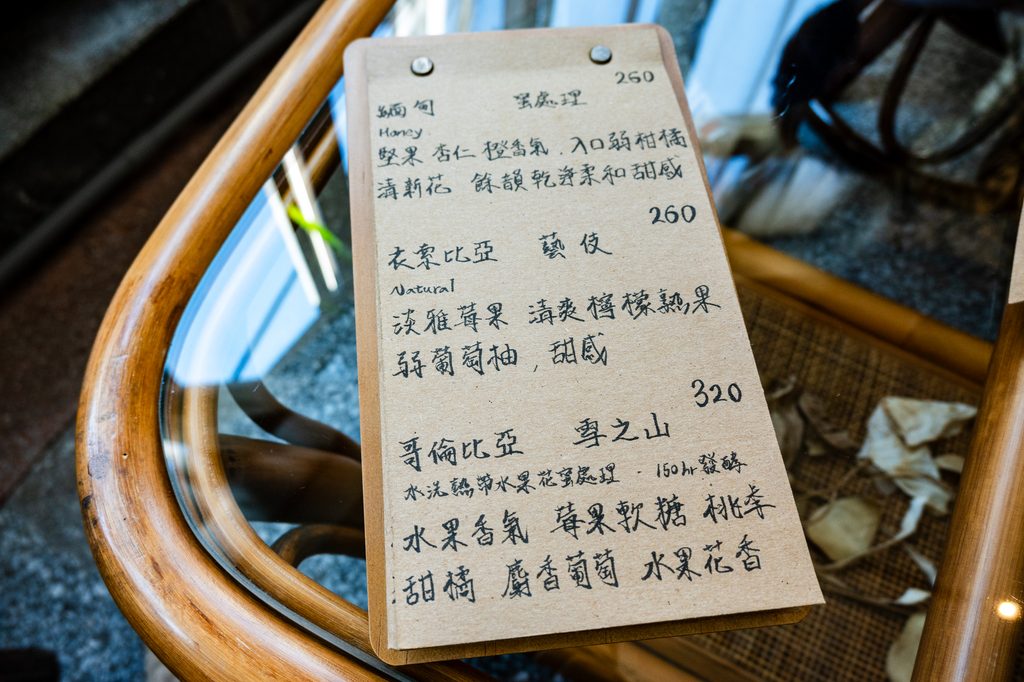 260
緬甸 蜜處理
Honey
堅果 杏仁 橙香氣 入口弱柑橘
清新花 餘韻乾淨柔和甜感
260
衣索比亞 藝伎
Natural
淡雅莓果 清爽檸檬熟果
弱葡萄柚,甜感
320
哥倫比亞 雪之山
水洗熱帶水果花蜜處理 · 150hr發酵
水果香氣 莓果軟糖 桃李
甜橘 麝香葡萄 水果花香